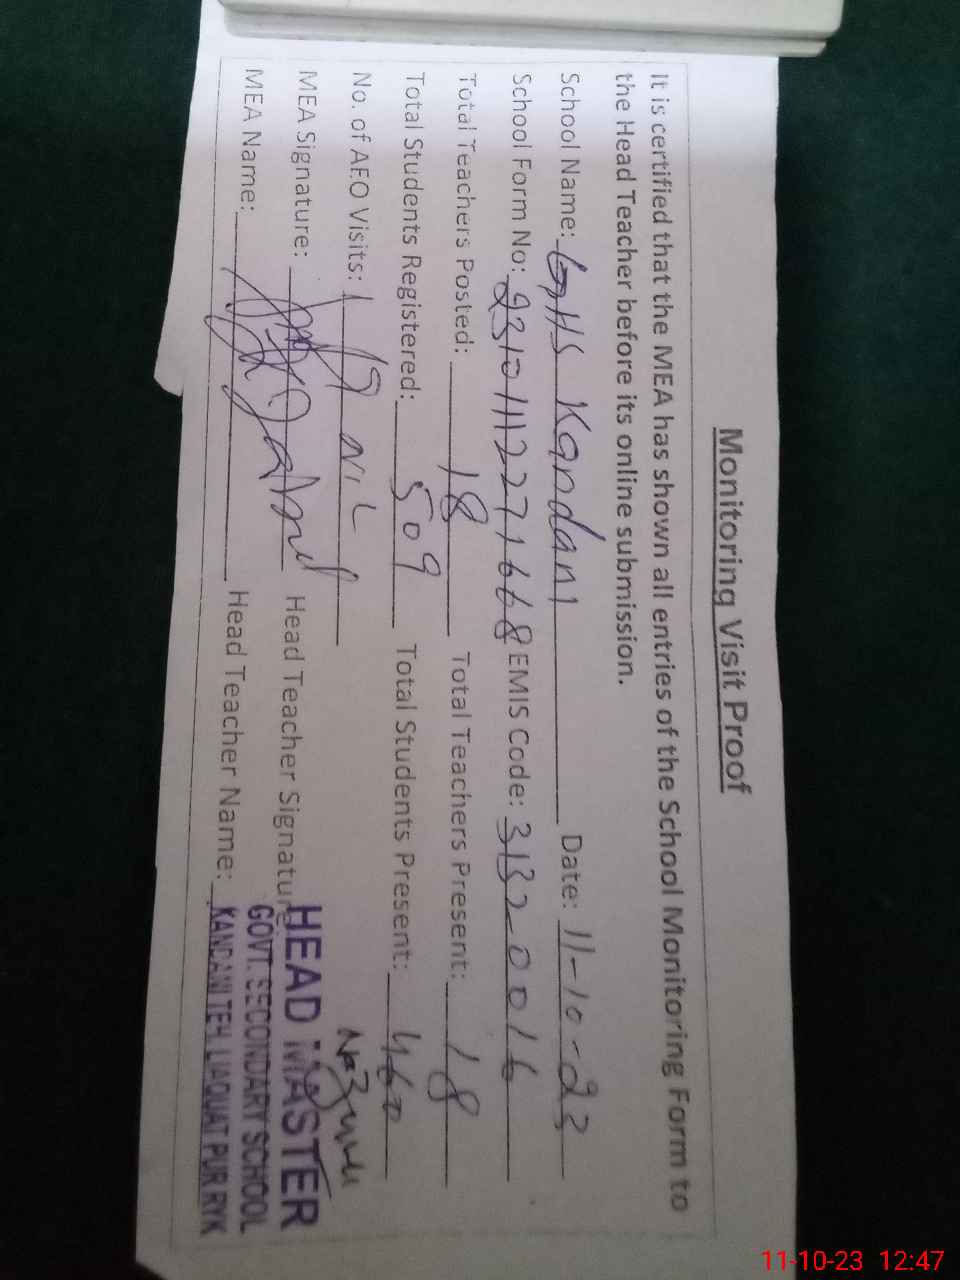 Monitoring Visit Proof
It is certified that the MEA has shown all entries of the School Monitoring Form to
the Head Teacher before its online submission.
School Name: GHS Kandani Date: 11-10-23
School Form No: 231011122771668 EMIS Code: 31320016
Total Teachers Posted: 18 Total Teachers Present: 18
Total Students Registered: 509 Total Students Present: 460
No. of AEO Visits: NIL
MEA Signature: Head Teacher Signature
HEAD MASTER
MEA Name: Head Teacher Name:
GOVT. SECONDARY SCHOOL
KANDANI TEH. LIAQUAT PUR RYK
11-10-23 12:47